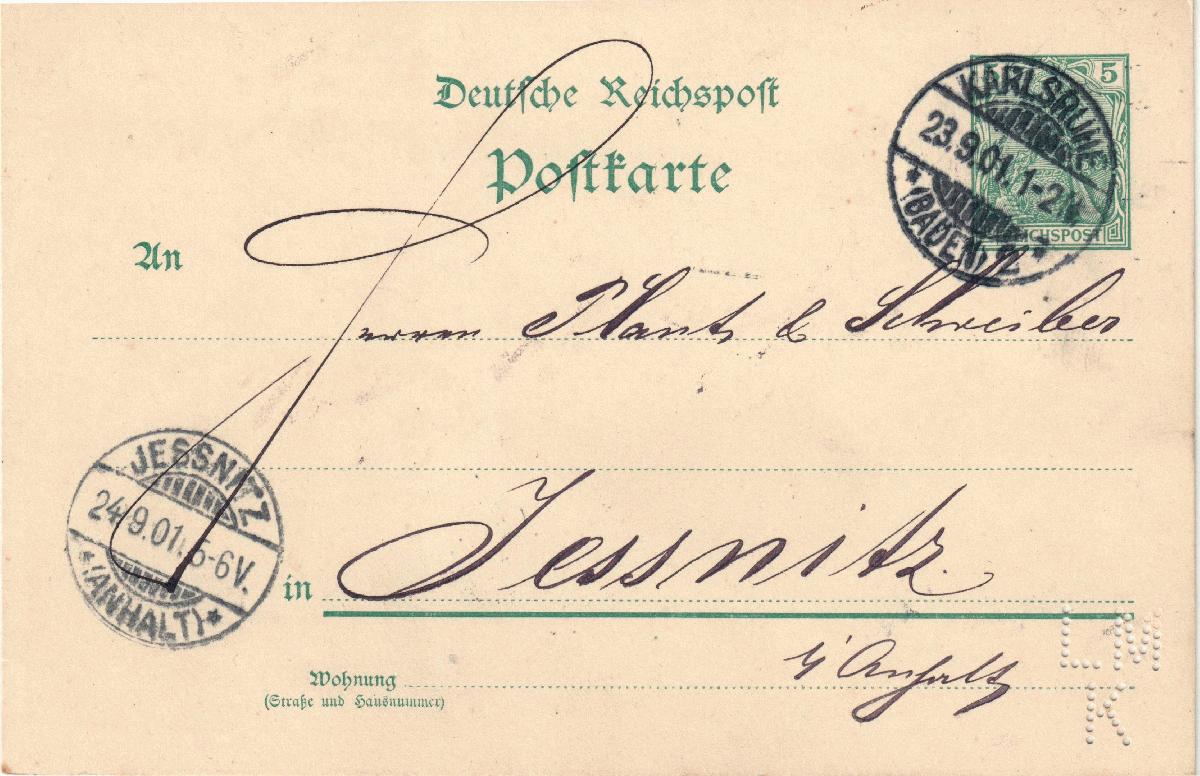 Deutsche Reichspost
5
Postkarte
KARLSRUHE
23.9.01.1-2N
* (BADEN) 2 *
REICHSPOST
An
Herren Plaut & Schreiber
JESSNITZ
24.9.01. 5-6V.
* (ANHALT) *
in Jessnitz.
i/ Anhalt
Wohnung
(Straße und Hausnummer)
LM
K